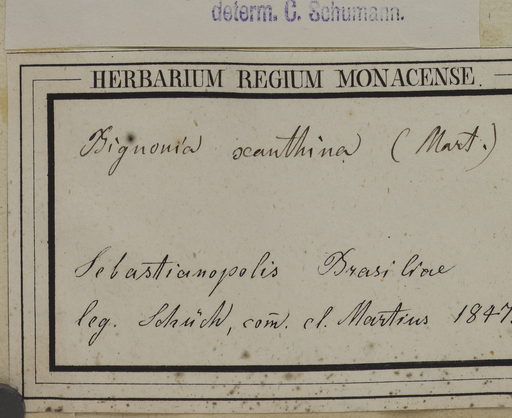 determ. C. Schumann.
HERBARIUM REGIUM MONACENSE.
Bignonia xanthina (Mart.)
Sebastianopolis Brasiliae
leg. Schüch, com̄. cl. Martius 1847.